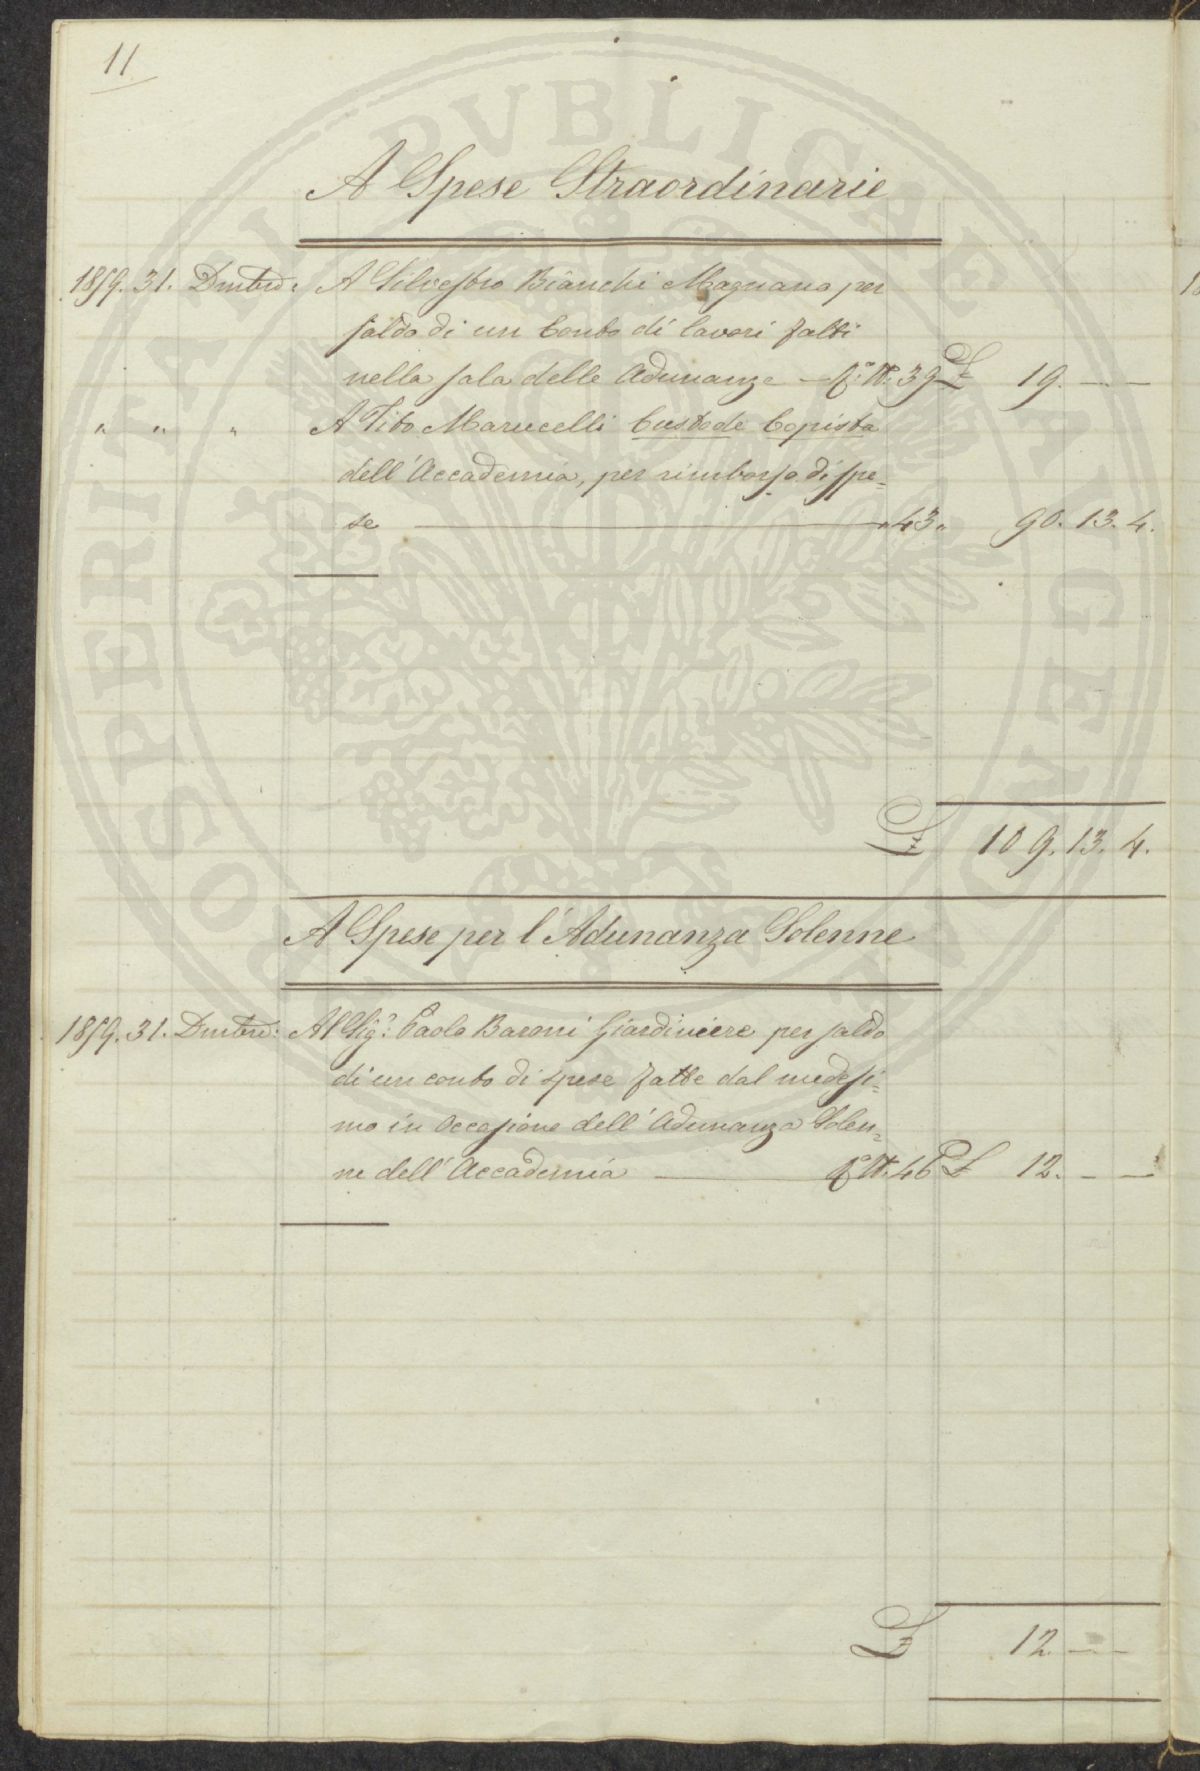 11
A Spese Straordinarie
1859. 31. Dmbre: A Silvestro Bianchi Magnano per
saldo di un Conto di lavori fatti
nella sala delle Adunanze — N: 39 £ 19. — —
" " " A Tito Marucelli Custode Copista
dell' Accademia, per rimborso di spe=
se — " 43 " 90. 13. 4.
£ 109. 13. 4.
A Spese per l'Adunanza Solenne
1859. 31. Dmbre: Al Sigr: Paolo Baroni Giardiniere per saldo
di un conto di spese fatte dal medesi=
mo in occasione dell' Adunanza Solen=
ne dell' Accademia — N. 46 £ 12. — —
£ 12 — —
PROSPERITATI PUBLICAE AVGENDAE